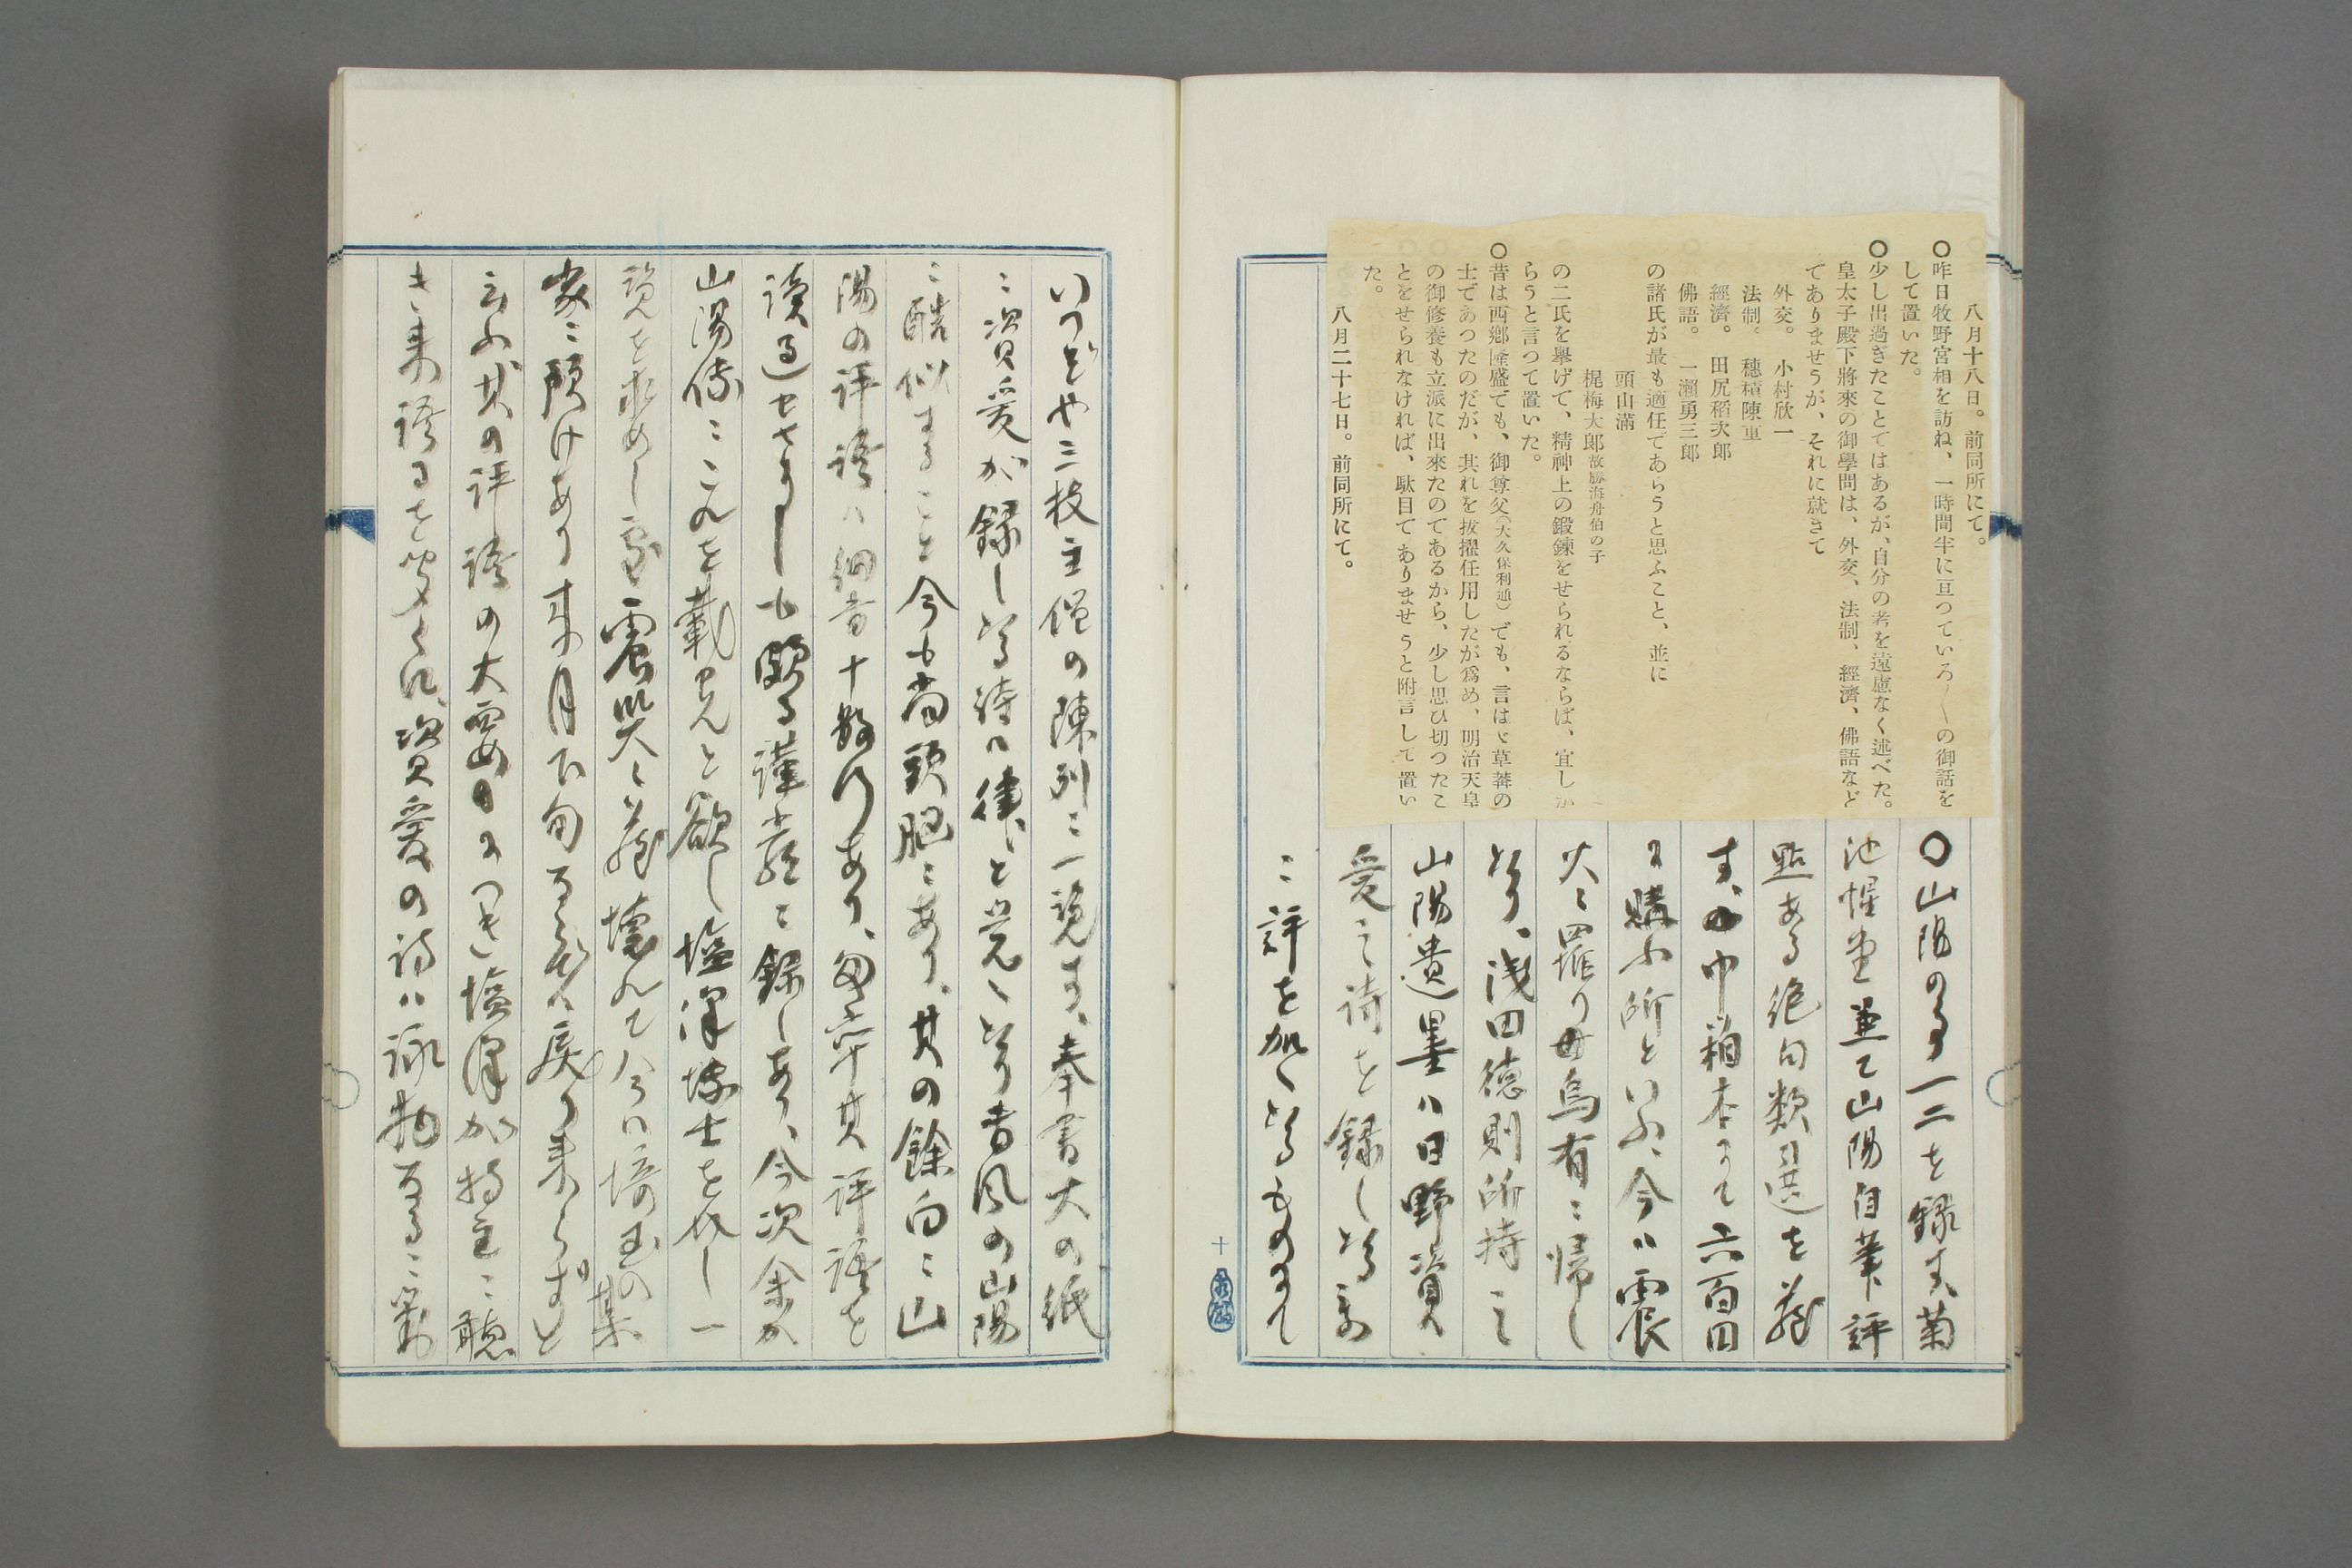 八月十八日。前同所にて。
〇昨日牧野宮相を訪ね、一時間半に亘つていろ〳〵の御話を
して置いた。
〇少し出過ぎたことではあるが、自分の考を遠慮なく述べた。
皇太子殿下將來の御學問は、外交、法制、經濟、佛語など
でありませうが、それに就きて
外交。 小村欣一
法制。 穗積陳重
經濟。 田尻稻次郎
佛語。 一瀨勇三郎
の諸氏が最も適任であらうと思ふこと、並に
頭山滿
梶梅太郎 故勝海舟伯の子
の二氏を擧げて、精神上の鍛鍊をせられるならば、宜しか
らうと言つて置いた。
〇昔は西鄕隆盛でも、御尊父(大久保利通)でも、言はゞ草莽の
士であつたのだが、其れを拔擢任用したが爲め、明治天皇
の御修養も立派に出來たのであるから、少し思ひ切つたこ
とをせられなければ、駄目でありませうと附言して置い
た。
八月二十七日。前同所にて。
〇山陽の事一二を録す、菊
池惺堂並て山陽自筆評
點ある絶句類選を藏
す、巾箱本にて六百円
に購ふ所といふ、今ハ震
火ニ罹り烏有ニ帰し
たり、浅田徳則所持之
山陽遺墨ハ日野資
愛之詩を録したる
ニ評を加へたるものにて
いつぞや三枝主僧の陳列ニ一覧す、奉書大の紙
ニ資愛が録したる詩ハ律と覚へたり書風の山陽
ニ酷似すること今も尚頭脳ニあり、其の餘白ニ山
陽の評語ハ細書十数行あり、其評語を
讀過せさりしも頗る謹嚴ニ録しあり、今次余が
山陽傳ニこれを載せんと欲し塩澤博士を介し一
覧を求めし處震災ニ藏壊れて今ハ埼玉の某
家ニ預けあり来月下旬ならでハ戻り来らずと
云ふ其の評語の大要日につき塩澤が持主ニ聽
き来語るを聞くに、資愛の詩ハ詠物なるニ
十